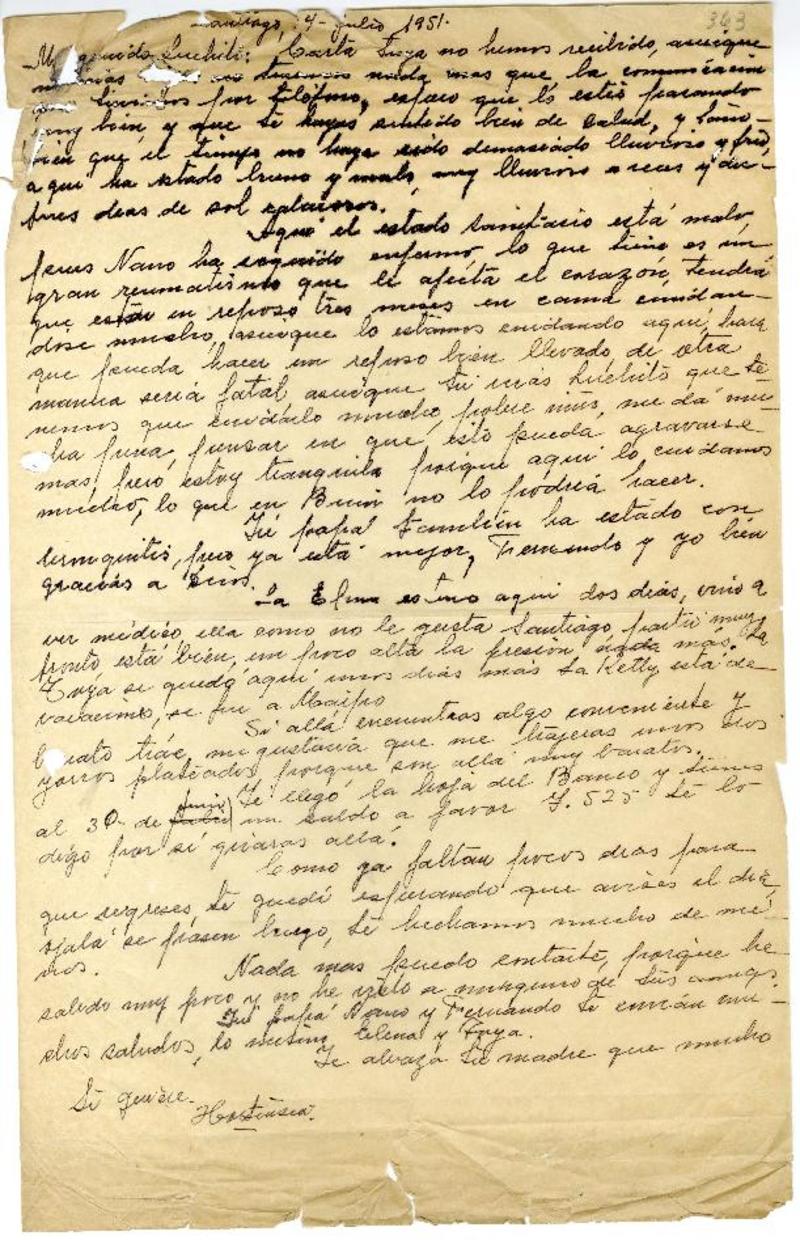 363
Santiago, 4 - julio 1951.
querido Luchito: Carta tuya no hemos recibido, asuique
nada mas que la comunicación
que tuvimos por teléfono, espero que lo estés pasando
muy bien, y que te hayas sentido bien de salud, y tam-
bien que el tiempo no haya sido demasiado lluvioso y frio,
aqui ha estado bueno y malo, muy lluvioso a veces y
dias de sol
Aqui el estado sanitario está malo,
pues Nano ha seguido enfermo, lo que tiene es un
gran reumatismo que le afecta el corazón, tendrá
que estar en reposo tres meses en cama cuidan-
dose mucho, asuique lo estamos cuidando aqui, para
que pueda hacer un reposo bien llevado, de otra
manera seria fatal, asuique tu verás Luchito que te-
nemos que cuidarlo mucho, pobre mio, me dá mu-
cha pena, pensar en que esto pueda agravarse
mas, pero estoy tranquila porque aqui lo cuidamos
mucho, lo que en Buin no lo podria hacer.
Tu papá tambien ha estado con
bronquitis, pero ya está mejor, Fernando y yo bien
gracias a Dios.
La Elena estuvo aqui dos dias, vino a
ver médico, ella como no le gusta Santiago, partió muy
pronto está bien, un poco alta la presión nada más. La
Toya se quedó aqui unos dias más La Ketty está de
vacaciones, se fue a Maipo
Si allá encuentras algo conveniente y
barato trae, me gustaria que me trajeras unos dos
zorros plateados, porque son allá muy baratos.
Te llegó la hoja del Banco y tienes
al 30 de junio un saldo a favor $. 525 te lo
digo por si giraras allá.
Como ya faltan pocos dias para
que regreses, te quedé esperando que avises el dia,
ojalá se pasen luego, te hechamos mucho de me-
nos.
Nada mas puedo contarte, porque he
salido muy poco y no he visto a ninguno de tus amigos.
Tu papá Nano y Fernando te envián mu-
chos saludos, lo mismo Elena y Toya.
Te abraza tu madre que mucho
te quiere.
Hortensia.